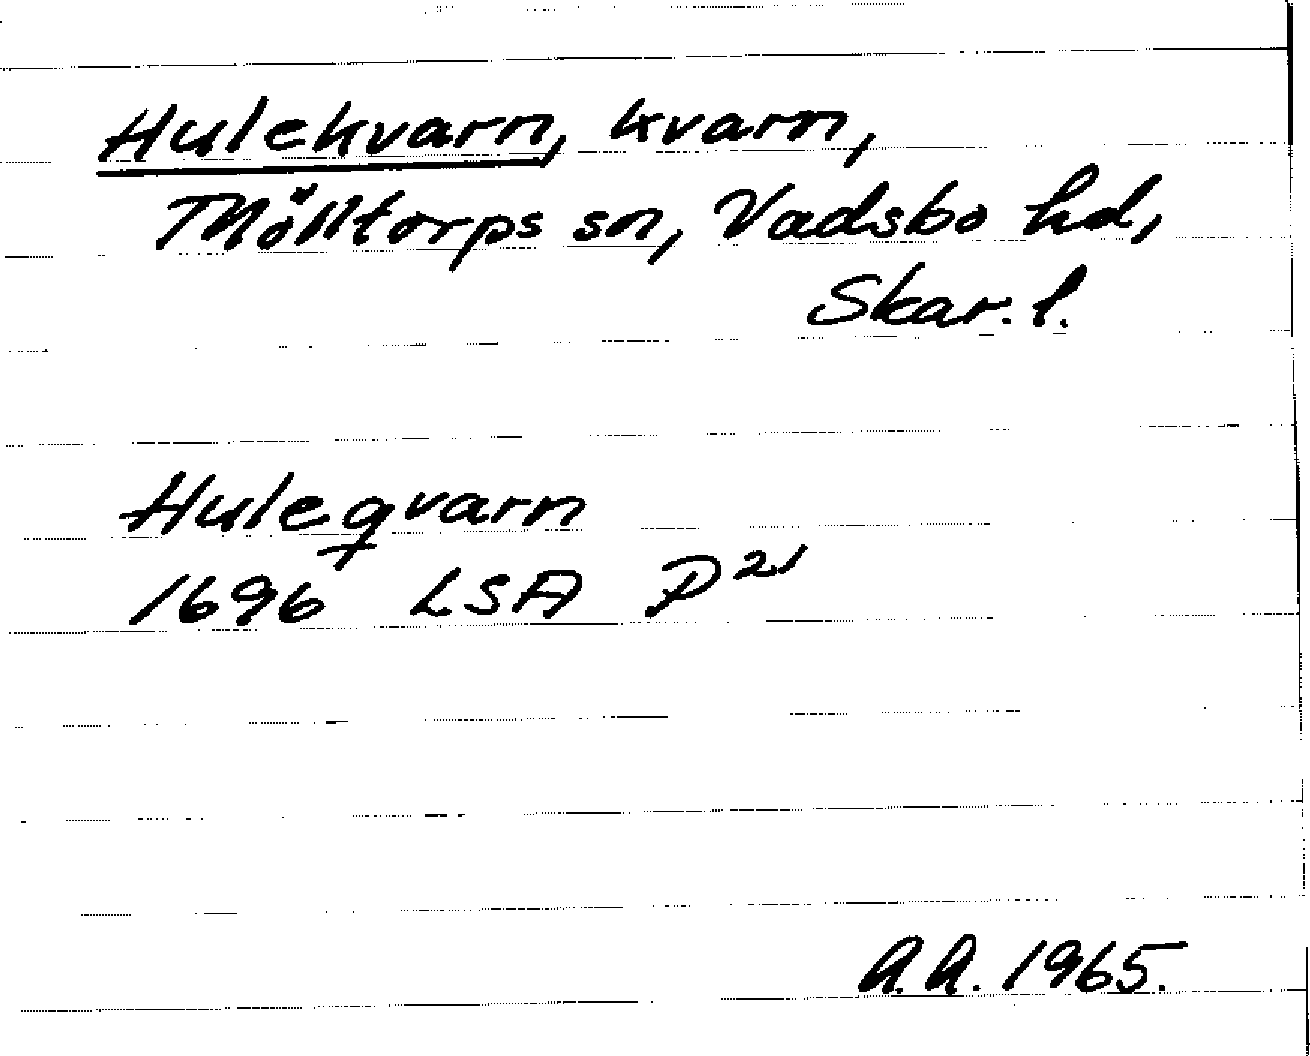 Hulekvarn, kvarn,
Mölltorps sn, Vadsbo hd,
Skar. l.
Huleqvarn
1696 LSA P21
A.A. 1965.